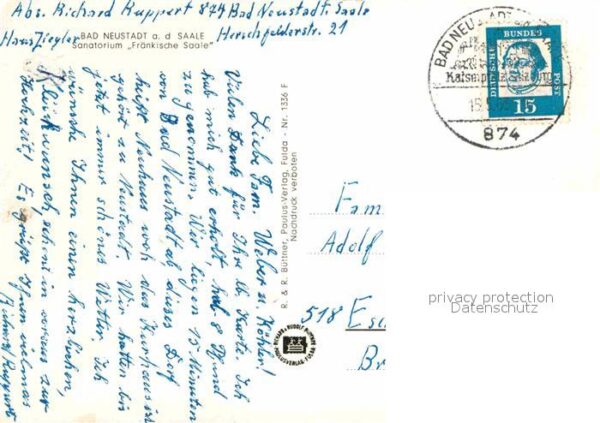 Abs. Richard Ruppert 874 Bad Neustadt Saale
Hans Ziegler Herschfelderstr. 21
BAD NEUSTADT a. d SAALE
Sanatorium „Fränkische Saale"
Liebe Fam. Weber u. Köhler!
Vielen Dank für Ihre lb. Karte. Ich
hab mich gut erholt, hab 8 Pfund
zugenommen. Wir liegen 15 Minuten
von Bad Neustadt ab, dieses Dorf
heißt Neuhaus, wo das Kurhaus ist
gehört zu Neustadt. Wir hatten bis
jetzt immer schönes Wetter. Ich
wünsche Ihnen einen herzlichen
Glückwunsch, schon in voraus zur
Hochzeit! Es grüßt Ihnen vielmals
Richard Ruppert
R. & R. Büttner, Paulus-Verlag, Fulda - Nr. 1336 F
Nachdruck verboten
RICHARD & RUDOLF BÜTTNER
PAULUSVERLAG FULDA
BAD NEUSTADT
874
DEUTSCHE BUNDESPOST
15
Fam
Adolf
518 Esc
privacy protection
Datenschutz